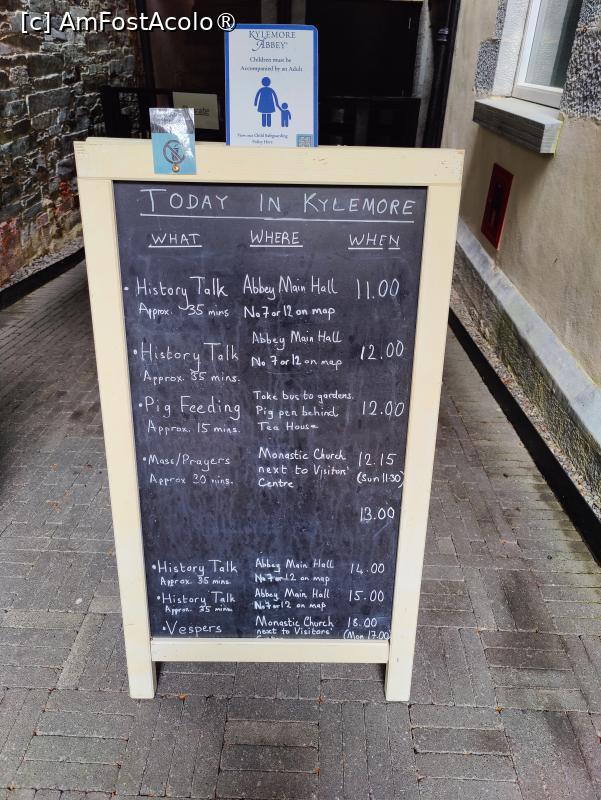 [c] AmFostAcolo®
KYLEMORE
ABBEY
Children must be
Accompanied by an Adult
View our Child Safeguarding
Policy Here
TODAY IN KYLEMORE
WHAT WHERE WHEN
• History Talk Abbey Main Hall 11.00
Approx. 35 mins No 7 or 12 on map
• History Talk Abbey Main Hall 12.00
Approx. 35 mins. No 7 or 12 on map
• Pig Feeding Take bus to gardens. 12.00
Approx. 15 mins. Pig pen behind
Tea House
• Mass/Prayers Monastic Church 12.15
Approx 20 mins. next to Visitors' (Sun 11:30)
Centre
13.00
• History Talk Abbey Main Hall 14.00
Approx. 35 mins. No 7 or 12 on map
• History Talk Abbey Main Hall 15.00
Approx. 35 mins. No 7 or 12 on map
• Vespers Monastic Church 18.00
next to Visitors' (Mon 17.00)